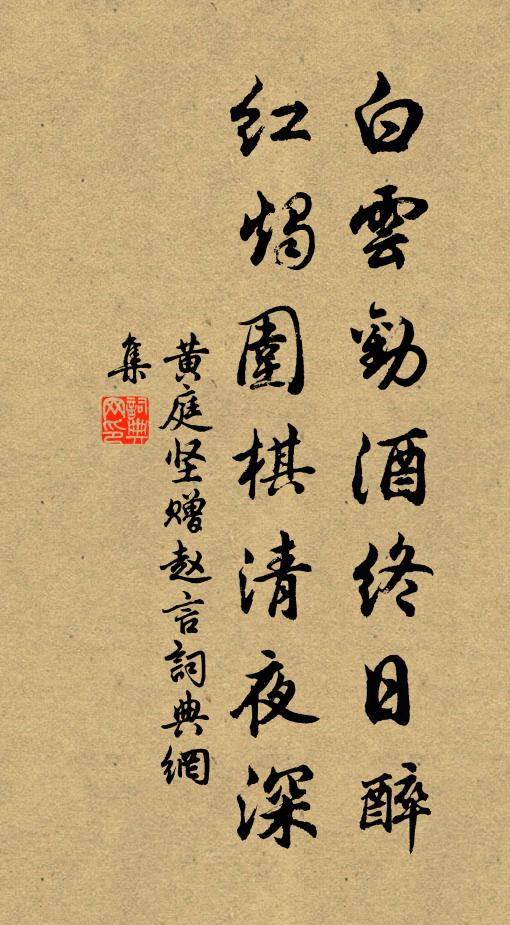 白雲勸酒終日醉
紅燭圍棋清夜深
黄庭坚赠赵言詞典網
集
詞典網印